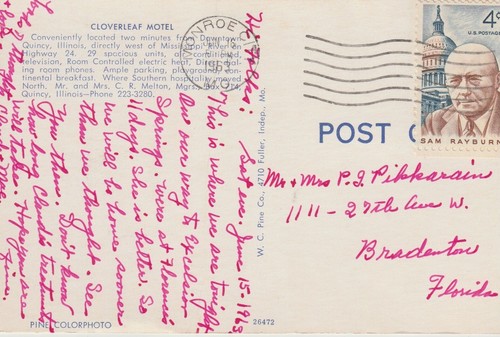 CLOVERLEAF MOTEL
Conveniently located two minutes from Downtown
Quincy, Illinois, directly west of Mississippi River on
Highway 24. 29 spacious units, air-conditioned,
television, Room Controlled electric heat, Di
ing room phones. Ample parking, playground,
tinental breakfast. Where Southern hospitality moved
North. Mr. and Mrs. C. R. Melton, Mgrs. Box 224,
Quincy, Illinois—Phone 223-3280.
Hello: Sat. eve. June 15-1963
This is where we are tonight
on our way to Excelsior
Springs. Were at Florence's
11 days. She is better. So
we will be home sooner
than we thought. See
you then. Don't know
how long Claude's treatments
will take. Hope you are
fine.
PINE COLORPHOTO
26472
W. C. Pine Co., 4710 Fuller, Indep., Mo.
MONROE
JUN
1963
4¢
U.S. POSTAGE
SAM RAYBURN
POST C
Mr + Mrs P. J. Pikkarain
1111-27th Ave W.
Bradenton
Florida